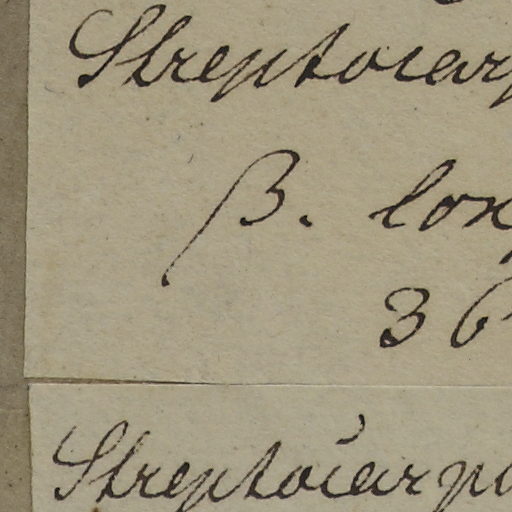 Streptocarp
β. long
36
Streptocarpu